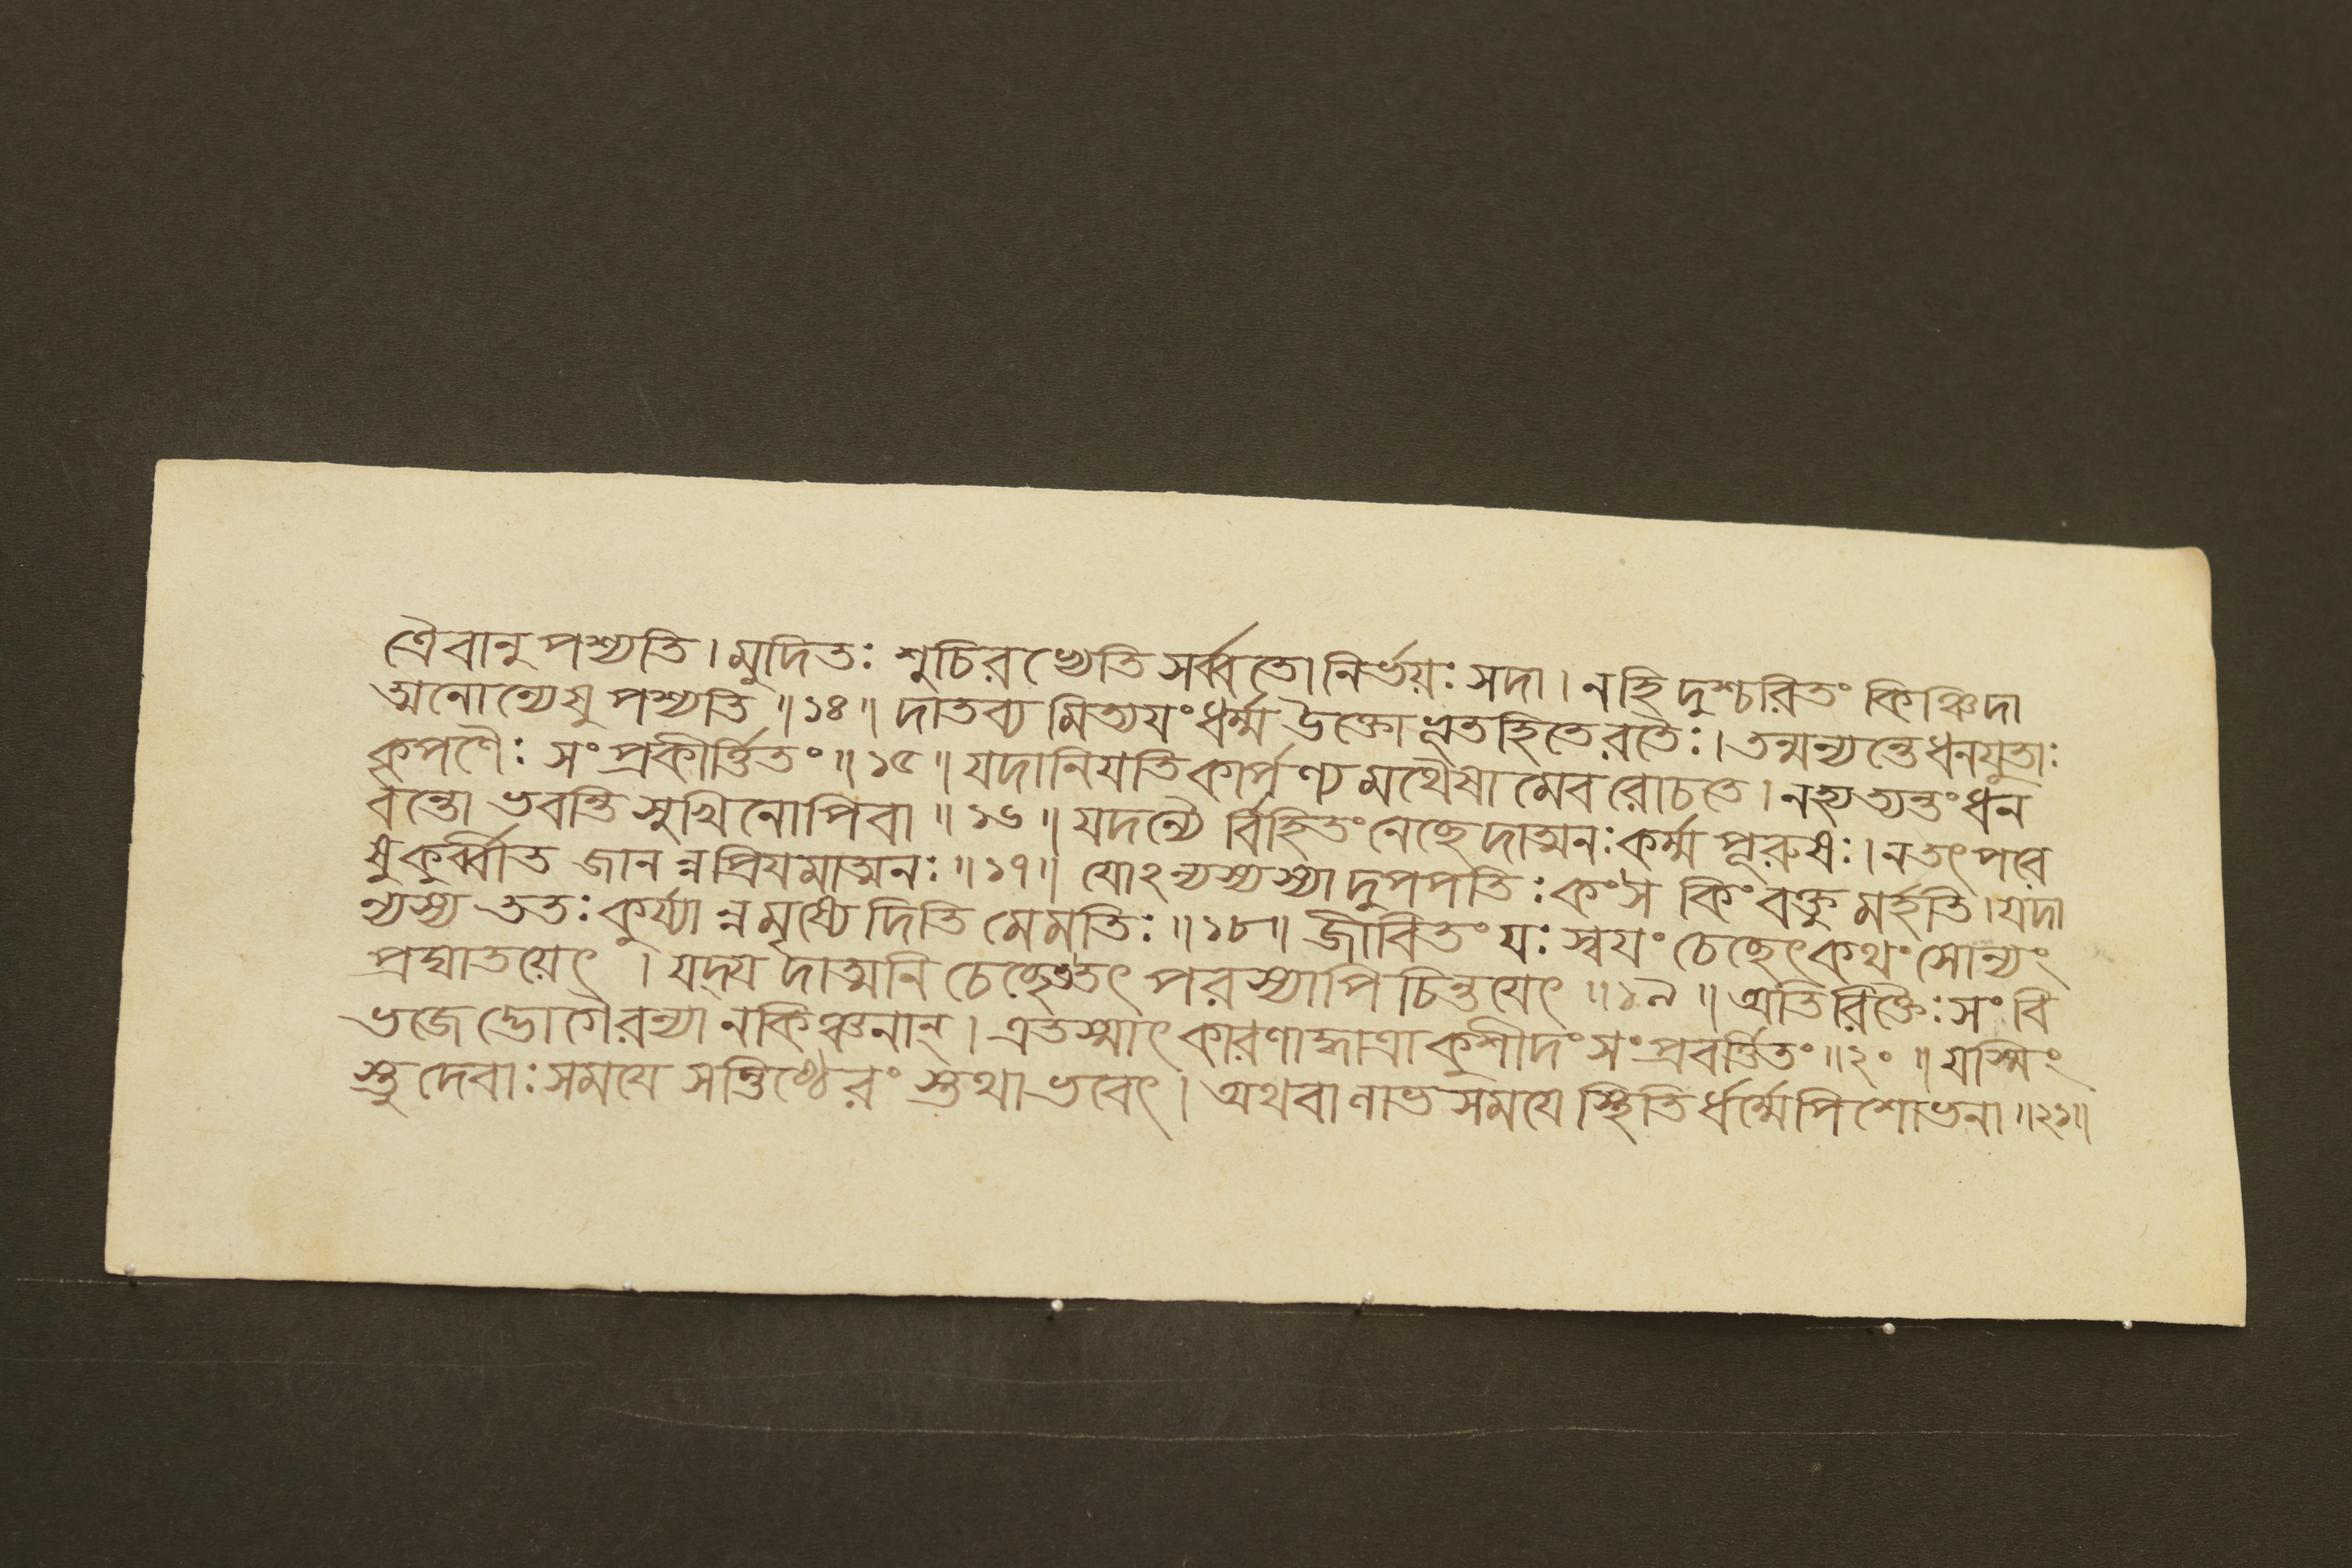 ত্রৈবানুপশ্যতি। মুদিতঃ শুচিরভ্যেতি সর্ব্বতোনির্ভয়ঃ সদা। নহি দুশ্চরিতং কিঞ্চিদা
ত্মনোন্যেষু পশ্যতি॥১৪॥ দাতব্য মিত্যযংধর্ম্ম উক্তোভূতহিতেরতৈঃ। তন্মন্যন্তেধনযুতাঃ
কৃপণৈঃ সংপ্রকীর্ত্তিতং॥১৫॥ যদানিযতিকার্পণ্য মথৈষা মেব রোচতে। নহ্যত্যন্তংধন
বন্তো ভবন্তি সুখিনোপিবা॥১৬॥ যদন্যৈ র্বিহিতং নেছেদাত্মনঃকর্ম্ম পূরুষঃ। নতৎপরে
ষুকুর্ব্বীত জান ন্নপ্রিযমাত্মনঃ॥১৭॥ যোঽন্যস্যস্যা দুপপতিঃ কংস কিং বক্তু মর্হতি। যদা
ন্যস্য ততঃ কুর্য্যা ন্ন মৃষ্যে দিতি মেমতিঃ॥১৮॥ জীবিতং যঃ স্বযং চেছেৎকথং সোন্যং
প্রঘাতয়েৎ । যদ্য দাত্মনি চেচ্ছেত্তৎ পরস্যাপি চিন্তযেৎ॥১৯॥ অতিরিক্তৈঃ সংবি
ভজে দ্ভোগৈরন্যা নকিঞ্চনান্। এতস্মাৎ কারণাদ্ধাত্রা কুশীদং সংপ্রবর্ত্তিতং॥২০॥ যস্মিং
স্তু দেবাঃ সমযে সন্তিষ্ঠেরং স্তথা ভবেৎ। অথবা ণাভ সমযে স্থিতি র্ধর্ম্মেপি শোভনা॥২১॥